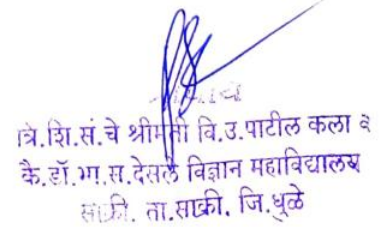 त्रि.शि.सं.चे श्रीमती वि.उ.पाटील कला व
कै.डॉ.भा.स.देसले विज्ञान महाविद्यालय
साक्री. ता.साक्री. जि.धुळे